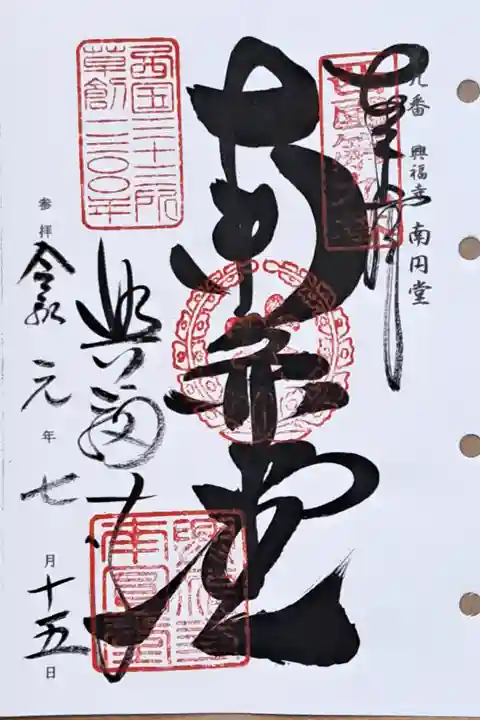 九番 興福寺 南円堂
奉拝
南円堂
興福寺
西国三十三所
草創一三〇〇年
参拝 令和元年七月十五日